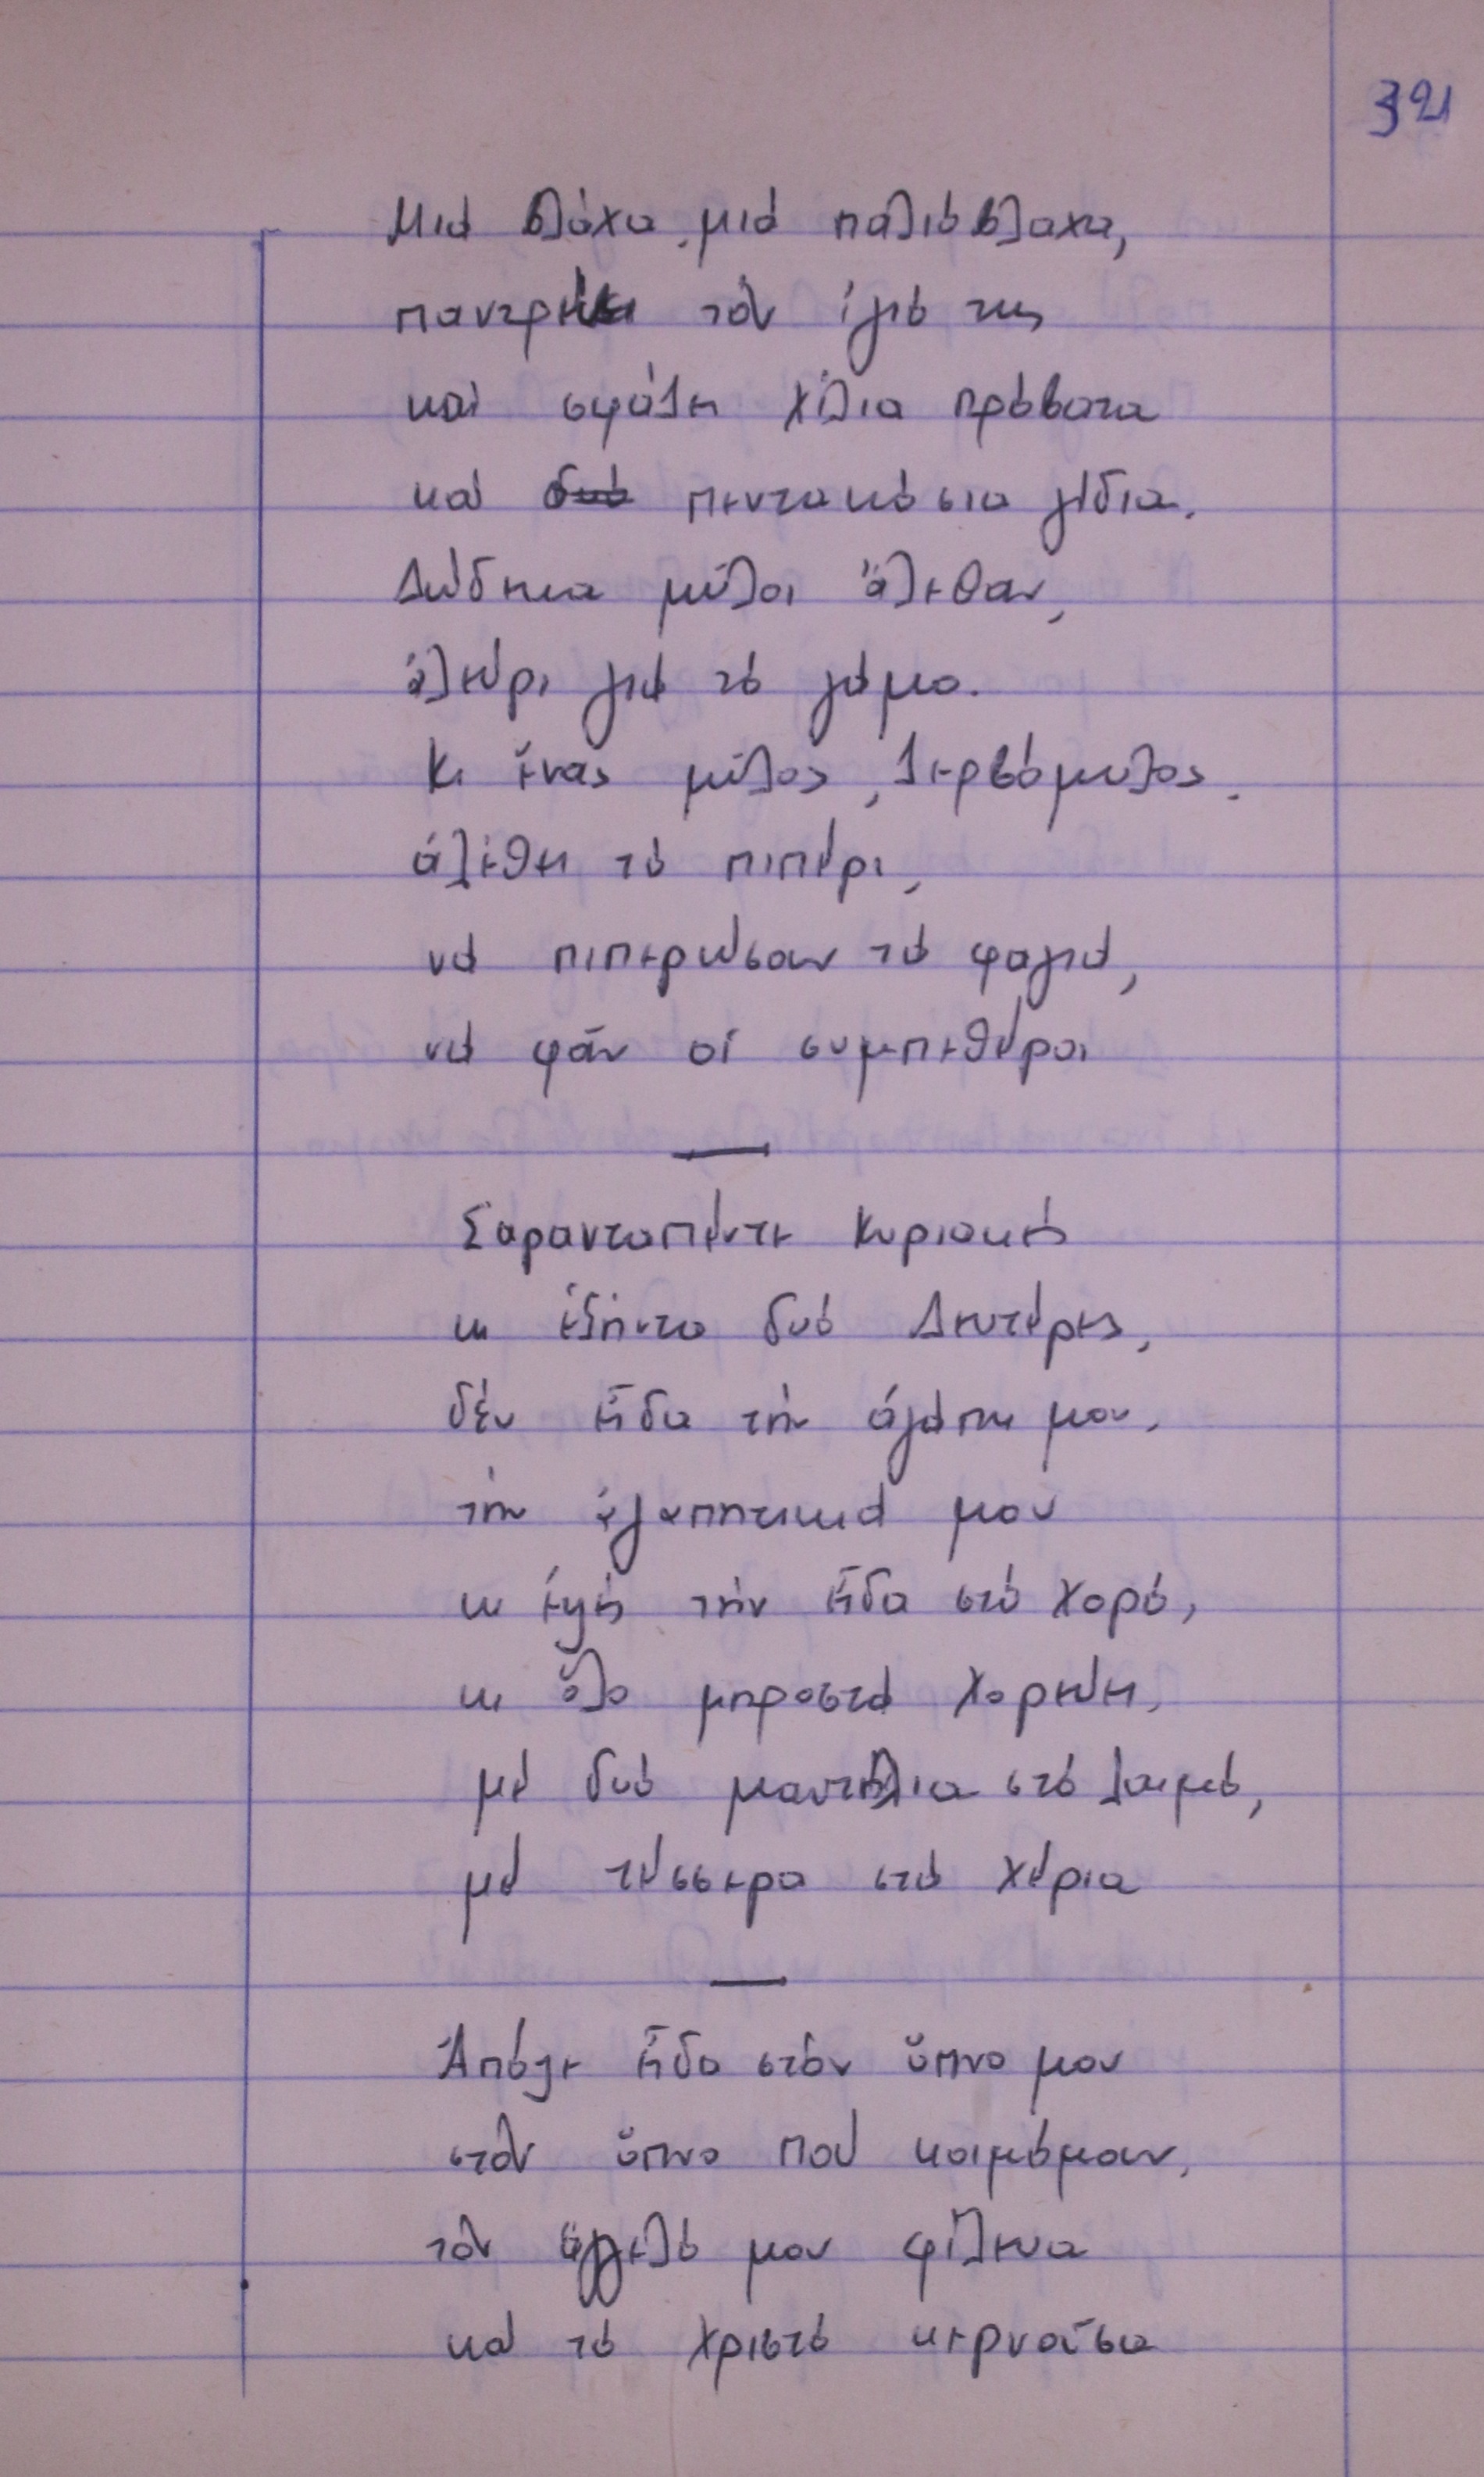 321
Μιά βλάχα, μιά παλιόβλαχα,
παντρεύει τόν ἱγιό της
καί σφάζει χίλια πρόβατα
καί δυό πεντακόσια γίδια.
Δώδεκα μύλοι ἄλεθαν,
ἀλεύρι γιά τό γάμο.
Κι ἕνας μύλος, ζερβόμυλος.
ἀλέθει τό πιπέρι,
νά πιπερώσουν τά φαγιά,
νά φᾶν οἱ συμπεθέροι
Σαρανταπέντε Κυριακές
κι ἑξήντα δυό Δευτέρες,
δέν εἶδα τήν ἀγάπη μου,
τήν ἀγαπητικιά μου
κι ἐψές τήν εἶδα στό χορό,
κι ὅλο μπροστά χορεύει,
μέ δυό μαντήλια στό λαιμό,
μέ τέσσερα στά χέρια
Ἀπόψε εἶδα στόν ὕπνο μου
στόν ὕπνο πού κοιμόμουν,
τόν ἄγγελό μου φίλευα
καί τό Χριστό κερνοῦσα